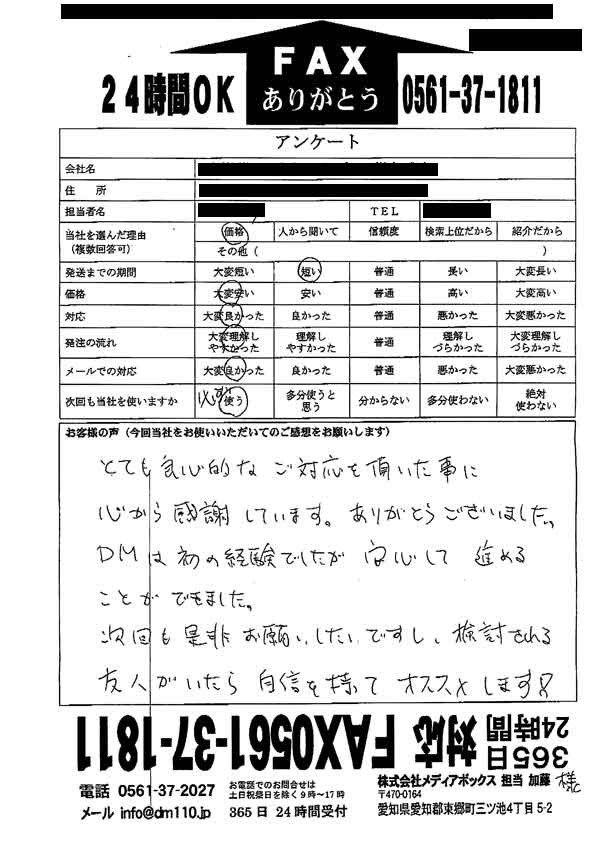 FAX
ありがとう
24時間OK
0561-37-1811
アンケート
会社名
住 所
担当者名 TEL
当社を選んだ理由(複数回答可) 価格 人から聞いて 信頼度 検索上位だから 紹介だから
その他( )
発送までの期間 大変短い 短い 普通 長い 大変長い
価格 大変安い 安い 普通 高い 大変高い
対応 大変良かった 良かった 普通 悪かった 大変悪かった
発注の流れ 大変理解しやすかった 理解しやすかった 普通 理解しづらかった 大変理解しづらかった
メールでの対応 大変良かった 良かった 普通 悪かった 大変悪かった
次回も当社を使いますか 必ず 使う 多分使うと思う 分からない 多分使わない 絶対使わない
お客様の声(今回当社をお使いいただいてのご感想をお願いします)
とても良心的なご対応を頂いた事に
心から感謝しています。ありがとうございました。
DMは初の経験でしたが安心して進める
ことができました。
次回も是非お願いしたいですし、検討される
友人がいたら自信を持ってオススメします!
365日24時間対応 FAX0561-37-1811
電話 0561-37-2027
メール info@dm110.jp
お電話でのお問合せは
土日祝祭日を除く9時~17時
365日24時間受付
株式会社メディアボックス 担当 加藤 様
〒470-0164
愛知県愛知郡東郷町三ツ池4丁目5-2